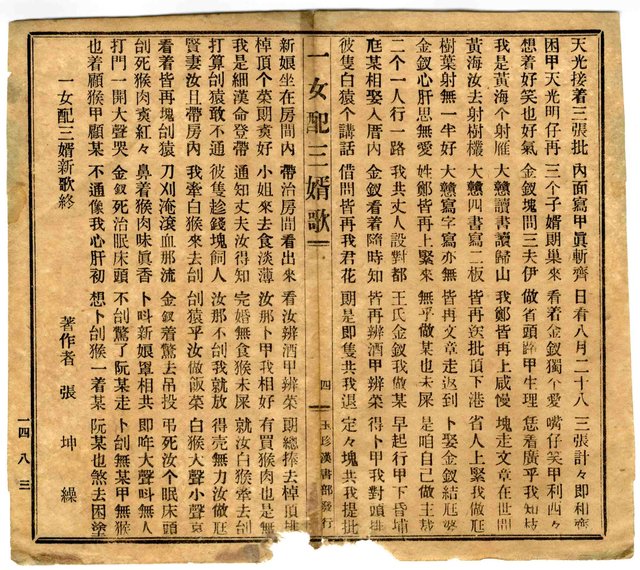 天光接着三張批　內面寫甲眞斬齊　日看八月二十八　三張計々即和齊
困甲天光明仔再　三个子婿期巢來　看着金釵獨个愛　嘴仔笑甲利四々
想着好笑也好氣　金釵塊問三夫伊　做省頭路甲生理　恁着廣乎我知枝
我是黃海个射雁　大戇讀書讀歸山　我鄭皆再上咸慢　塊走文章在世間
黃海汝去射樹欉　大戇四書寫二板　皆再送批頂下港　省人上緊我做尫
樹葉射無一半好　大戇寫字寫亦無　皆再文章走返到　卜娶金釵結尫婆
金釵心肝思無愛　姓鄭皆再上緊來　無乎做某也未屎　是咱自己做主裁
二个一人行一路　我共丈人設對都　王氏金釵我做某　早起行甲下昏埔
尫某相娶入厝內　金釵看着隨時知　皆再辨酒甲辨菜　得卜甲我對頭排
彼隻白猿个講話　借問皆再我君花　期是即隻共我退　定々塊共我提批
一女配三婿歌　四　玉珍漢書部發行
新娘坐在房間內　帶治房間看出來　看汝辨酒甲辨菜　期總捧去棹頂排
棹頂个菜期袁好　小姐來去食淡薄　汝那卜甲我相好　有買猴肉也
我是細漢命登帶　通知丈夫汝得知　完婚無食猴未屎　就汝白猴牽去刣
打算刣猿敢不通　彼隻趁錢塊飼人　汝那不刣我就放　得壳無力汝做尫
賢妻汝且帶房內　我牽白猴來去刣　刣猿乎汝做飯菜　白猴大聲小聲哀
看着皆再塊刣猿　刀刈淹滾血那流　金釵着驚去吊投　吊死汝个眠床頭
刣死猴肉袁紅々　鼻着猴肉味眞香　卜呌新娘罩相共　即咋大聲呌無人
打門一開大聲哭　金釵死治眠床頭　不刣驚了阮某走　卜刣無某甲無猴
也着顧猴甲顧某　不通像我心肝初　想卜刣猴一着某　阮某也煞去困塗
一女配三婿新歌終　著作者　張坤繰
一四八三